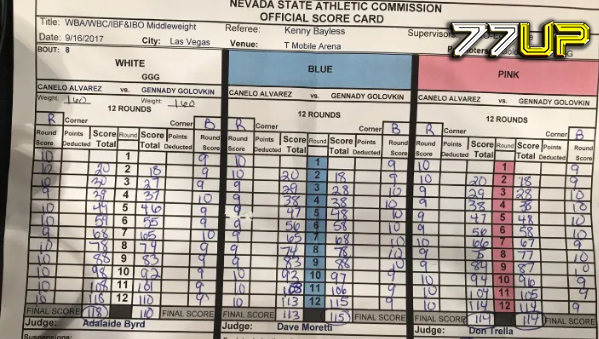 NEVADA STATE ATHLETIC COMMISSION
OFFICIAL SCORE CARD
Title: WBA/WBC/IBF&IBO Middleweight Referee: Kenny Bayless
Date: 9/16/2017 City: Las Vegas Venue: T Mobile Arena
77UP
BOUT: 8
WHITE BLUE PINK
GGG
CANELO ALVAREZ vs. GENNADY GOLOVKIN CANELO ALVAREZ vs. GENNADY GOLOVKIN CANELO ALVAREZ vs. GENNADY GOLOVKIN
Weight: 160 Weight: 160
12 ROUNDS 12 ROUNDS 12 ROUNDS
R Corner Corner B R Corner Corner B R Corner Corner B
Round Score Points Deducted Score Total Round Score Total Points Deducted Round Score Round Score Points Deducted Score Total Round Score Total Points Deducted Round Score Round Score Points Deducted Score Total Round Score Total Points Deducted Round Score
10 1 9 10 1 9 10 1 9
10 20 2 18 9 10 20 2 18 9 10 20 2 18 9
10 30 3 27 9 9 29 3 28 10 9 29 3 28 10
9 4 37 10 9 38 4 38 10 9 38 4 38 10
10 49 5 46 9 9 47 5 48 10 9 47 5 48 10
10 59 6 55 9 9 56 6 58 10 9 56 6 58 10
9 68 7 65 10 9 65 7 68 10 10 66 7 67 9
10 78 8 9 9 74 8 78 10 9 8 77 10
10 88 9 83 9 9 83 9 10 9 84 9 87 10
10 98 10 92 9 10 93 10 97 9 10 94 10 96 9
10 108 11 101 9 10 11 106 9 10 104 11 105 9
10 118 12 110 9 10 113 12 115 9 10 114 12 114 9
FINAL SCORE 118 110 FINAL SCORE FINAL SCORE 113 115 FINAL SCORE FINAL SCORE 114 114 FINAL SCORE
Judge: Adalaide Byrd Judge: Dave Moretti Judge: Don Trella